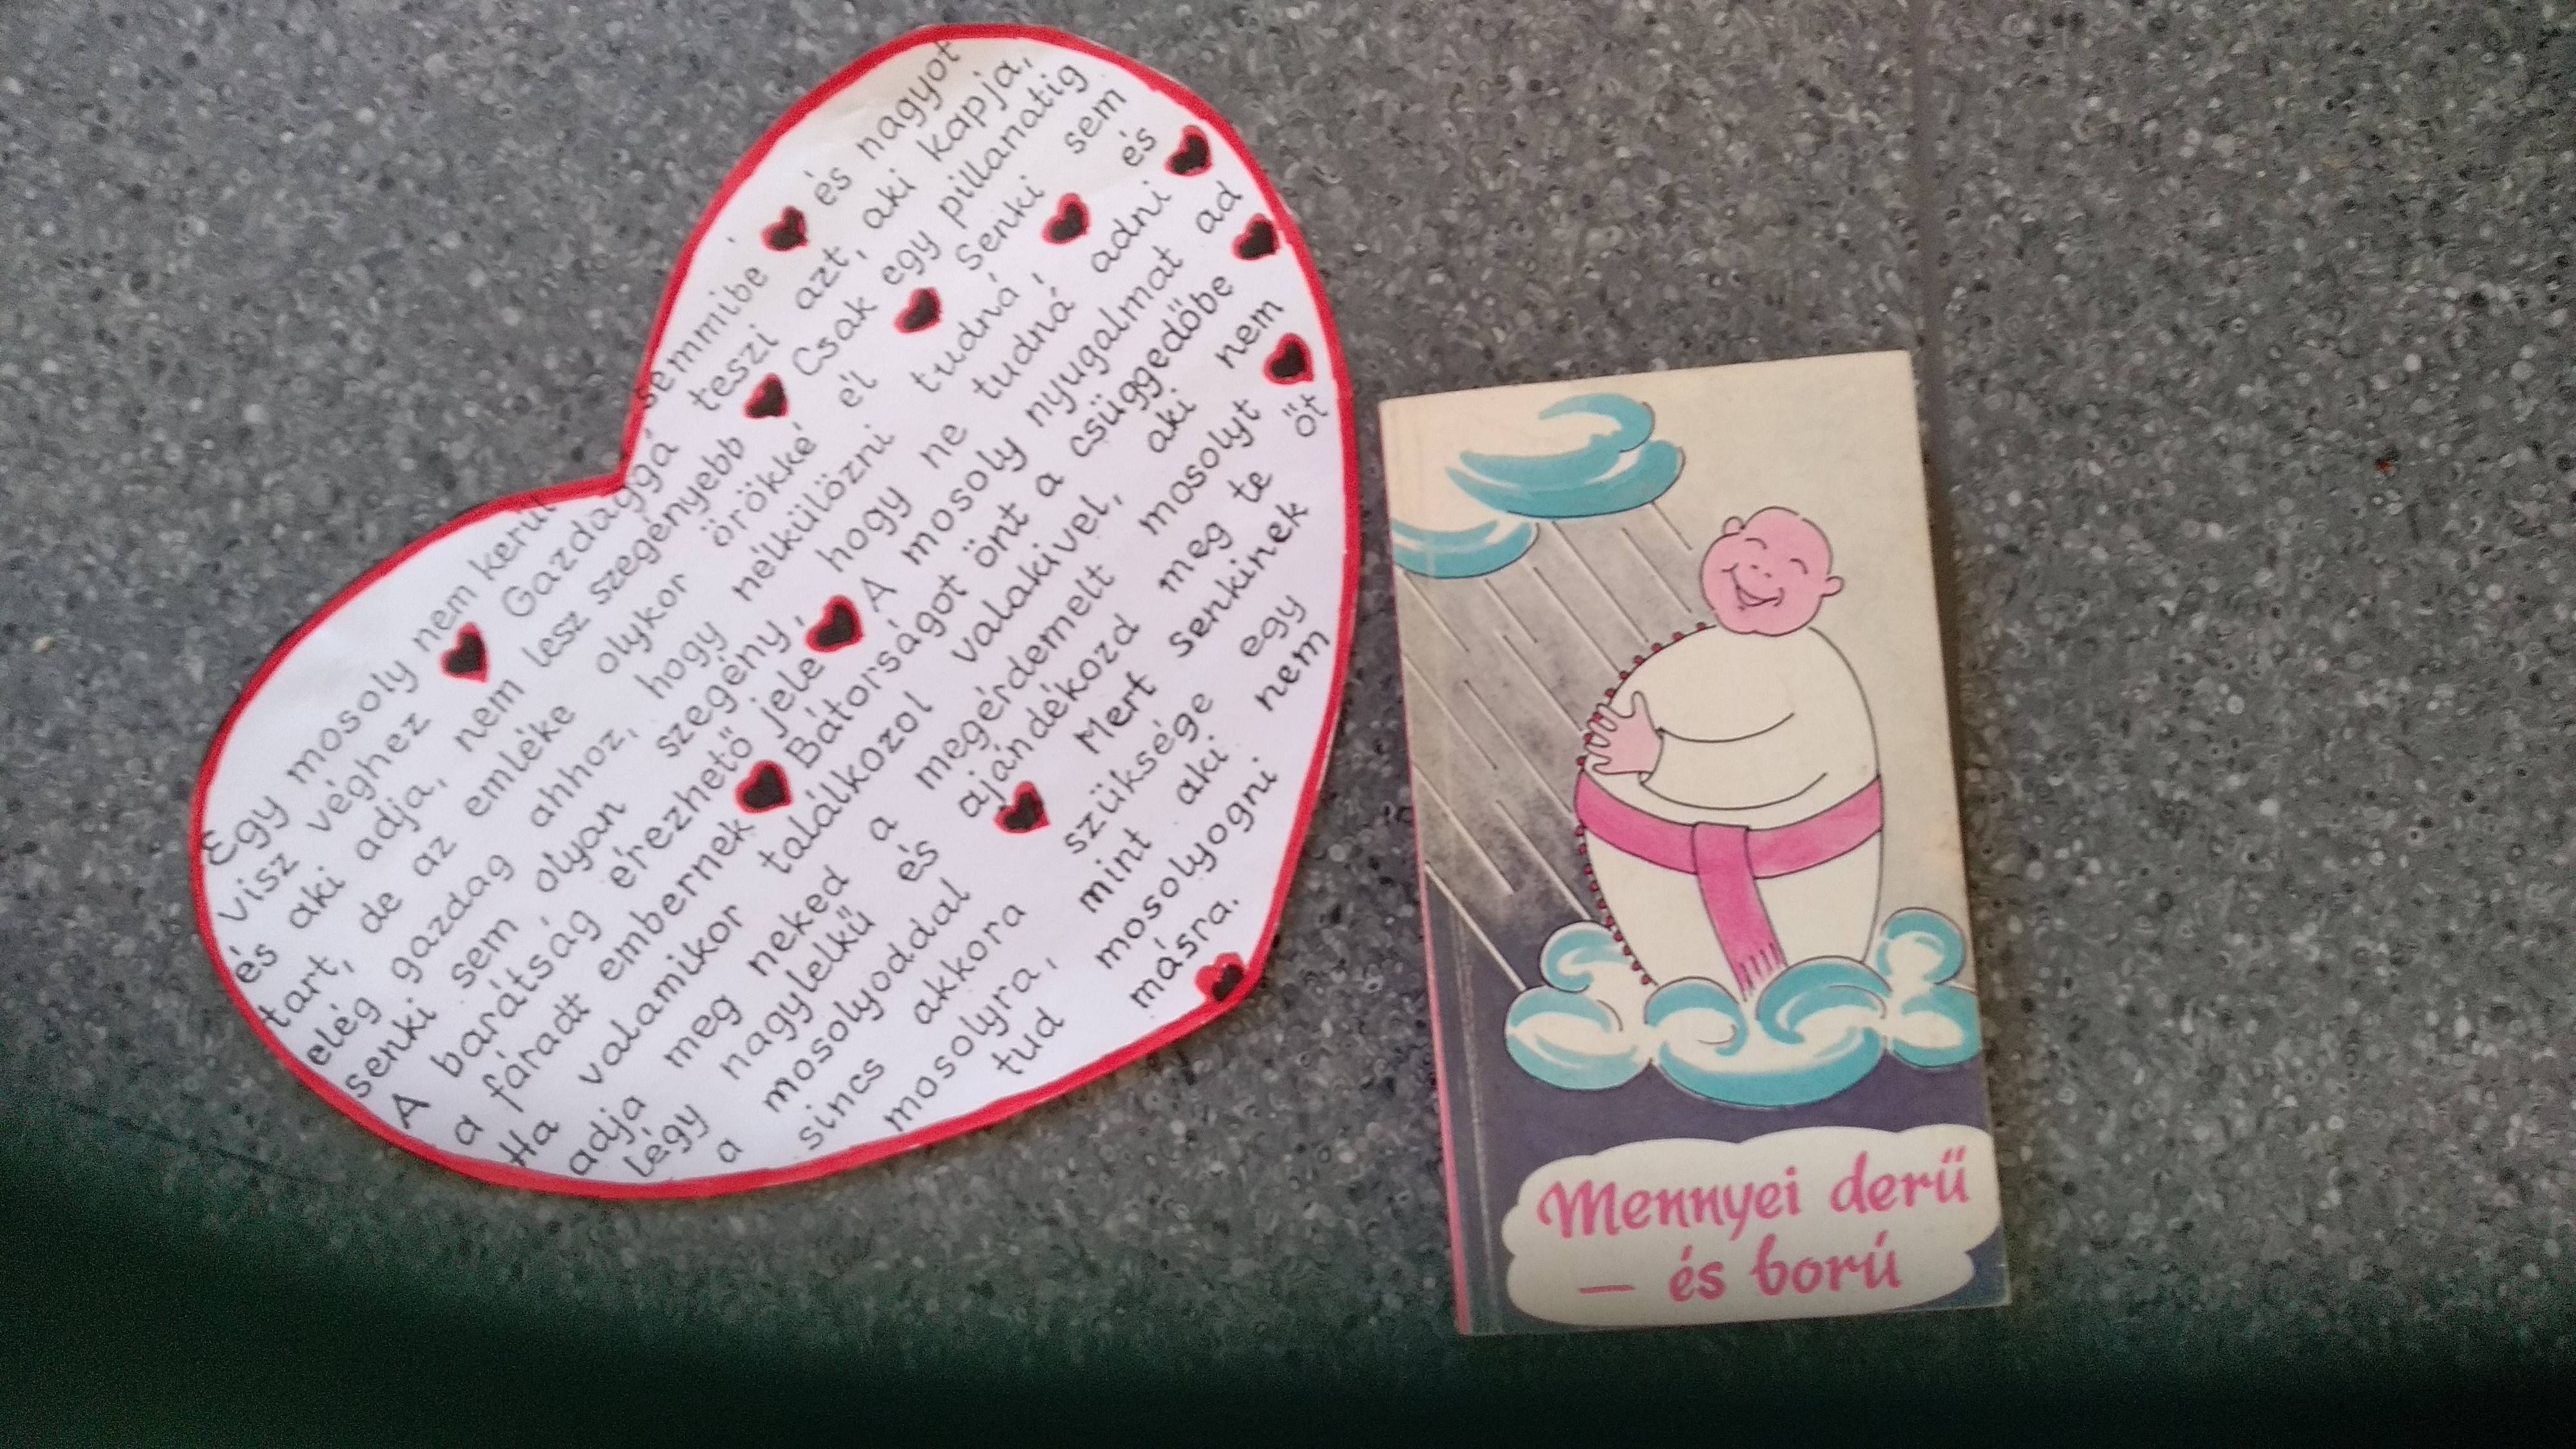 Egy mosoly nem kerül semmibe és nagyot
visz véghez Gazdaggá teszi azt, aki kapja,
és aki adja, nem lesz szegényebb Csak egy pillanatig
tart, de az emléke olykor örökké él Senki sem
elég gazdag ahhoz, hogy nélkülözni tudná, és
senki sem olyan szegény, hogy ne tudná adni
A barátság érezhető jele A mosoly nyugalmat ad
a fáradt embernek Bátorságot önt a csüggedőbe
Ha valamikor találkozol valakivel, aki nem
adja meg neked a megérdemelt mosolyt
légy nagylelkű és ajándékozd meg te őt
a mosolyoddal Mert senkinek
sincs akkora szüksége egy
mosolyra, mint aki nem
tud mosolyogni
másra.
Mennyei derű
— és ború